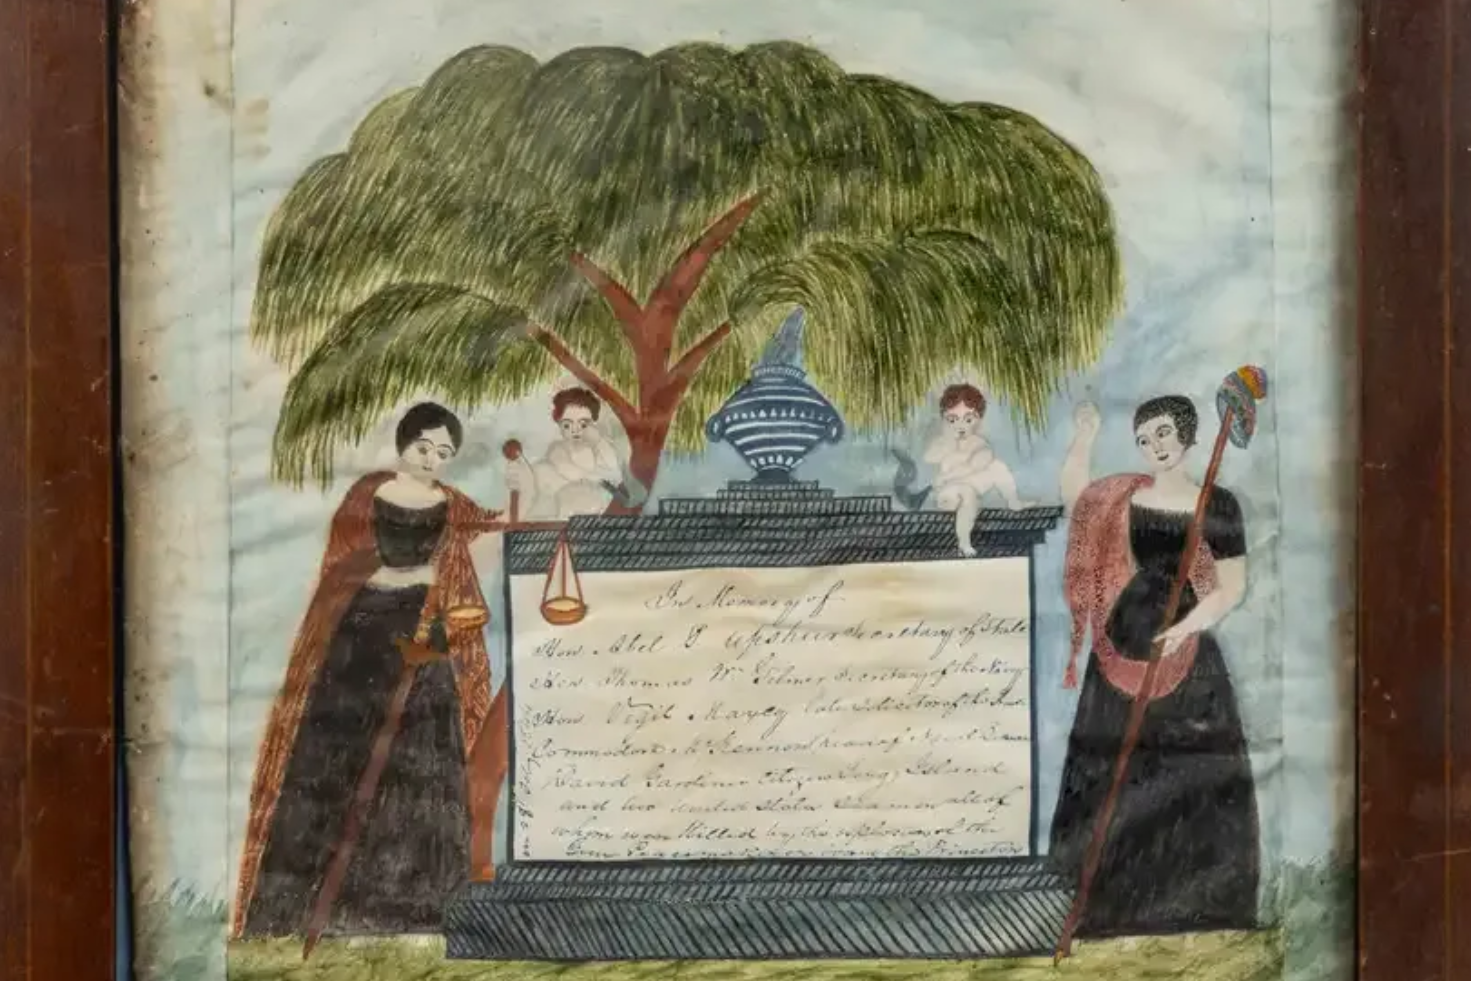 In Memory of
Hon Abel P Upshur Secretary of State
Hon Thomas W Gilmer Secretary of the Navy
Hon Virgil Maxcy late Solicitor of the
Commodore Kennon head of
David Gardiner Citizen Long Island
and two united States Seamen all of
whom were Killed by the explosion of the
Gun Peacemaker on board the Princeton